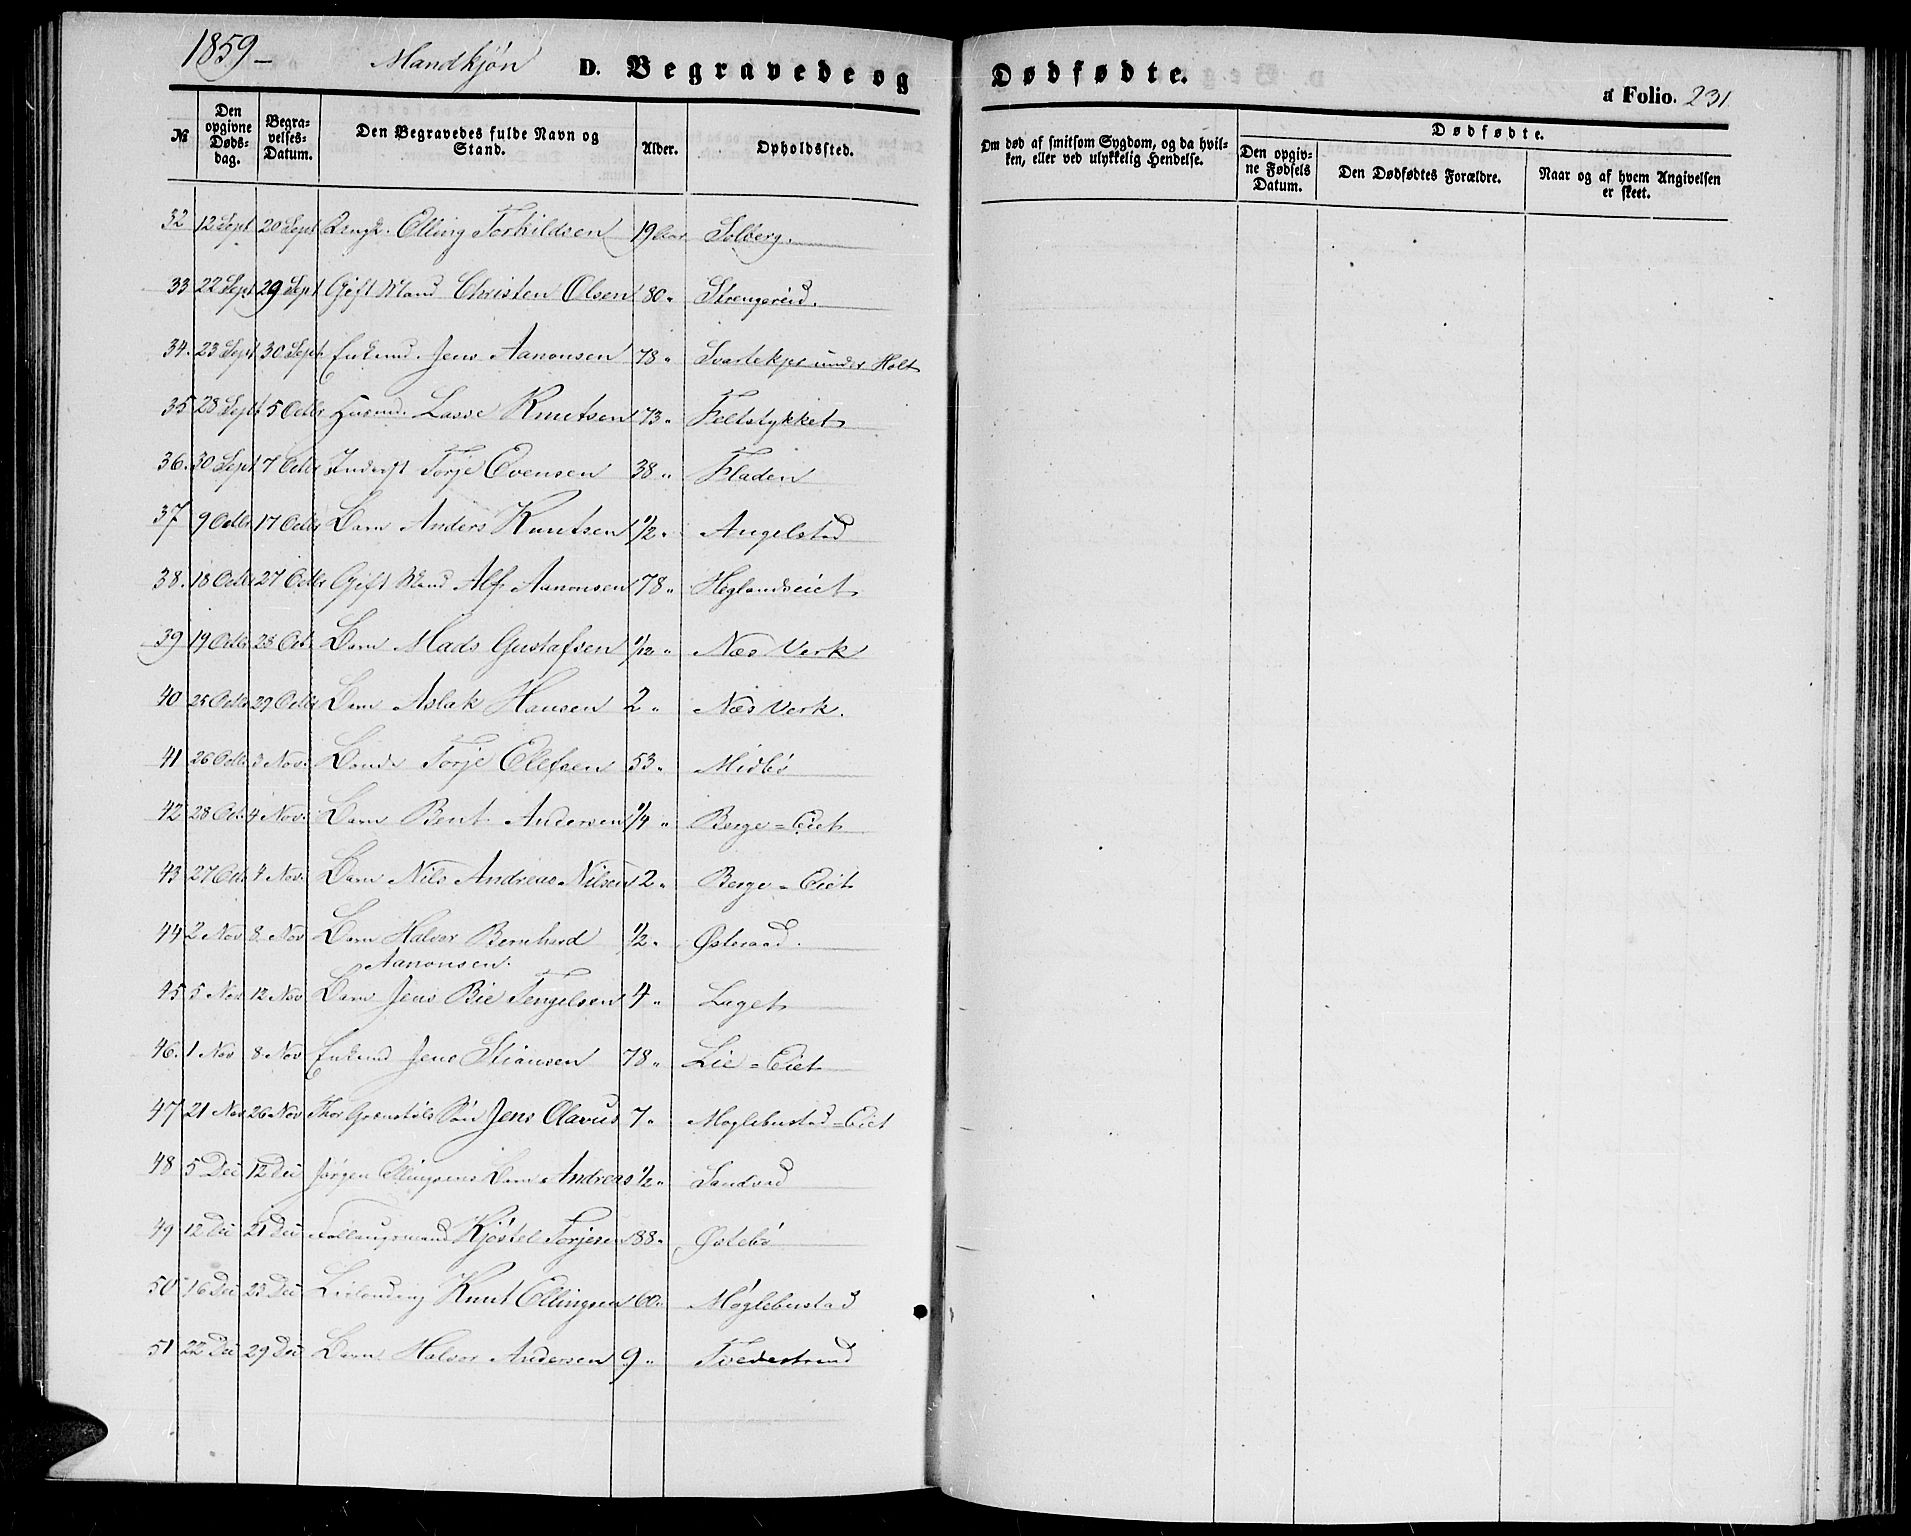 1859 –
Mandkjön
D. Begravede og Dødfødte.
a Folio. 231
№
Den opgivne Døds-dag.
Begra-velses-Datum.
Den Begravedes fulde Navn og Stand.
Alder.
Opholdssted.
Om død af smitsom Sygdom, og da hvil-ken, eller ved ulykkelig Hendelse.
Dødfødte.
Den opgiv-ne Fødsels Datum.
Den Dødfødtes Forældre.
Naar og af hvem Angivelsen er skeet.
32 12 Sept 20 Sept Ungk. Elling Torkildsen 19 Aar Solberg.
33 22 Sept 29 Sept Gift Mand Christen Olsen 80 " Strengereid.
34. 23 Sept 30 Sept Enkmd. Jens Aanonsen 78 " Svartekjer under Holt
35 28 Sept 5 Octbr Husmd. Lasse Knutsen 73 " Feltstykket
36. 30 Sept 7 Octbr Inderst Torje Evensen 38 " Fladen
37 9 Octbr 17 Octbr Barn Anders Knutsen 1/2 " Angelstad
38. 18 Octbr 27 Octbr Gift Mand Alf Aanonsen 78 " Heglandseiet
39 19 Octbr 28 Oct. Barn Mads Gustafsen 1/12 " Næs Verk
40 25 Octbr 29 Octbr Barn Aslak Hansen 2 " Næs Verk.
41 26 Octbr 3 Nov. Bonde Torje Olefsen 53 " Midbö
42 28 Oct. 4 Nov. Barn Bent Andersen 1/4 " Berge = Eiet
43 27 Oct. 4 Nov. Barn Nils Andreas Nilsen 2 " Berge = Eiet
44 2 Nov 8 Nov Barn Halvor Bernhard 1/2 " Østeraad.
Aanonsen.
45 5 Nov 12 Nov Barn Jens Bie Tengelsen 4 " Laget
46. 1 Nov 8 Nov Enkmd Jens Stiansen 78 " Lie = Eiet
47 21 Nov 26 Nov Thor Grenstöls Sön Jens Olavus 7 " Moglebustad = Eiet
48 5 Dec 12 Dec Jørgen Ellingsens Barn Andreas 1/2 " Sandved
49 12 Dec 21 Dec Föllaugsmand Kjöstel Torjesen 88 " Østebö
50 16 Dec 23 Dec Leilending Knut Ellingsen 60 " Møglebustad
51 22 Dec 29 Dec Barn Halvor Andersen 9 " Tvedestrand